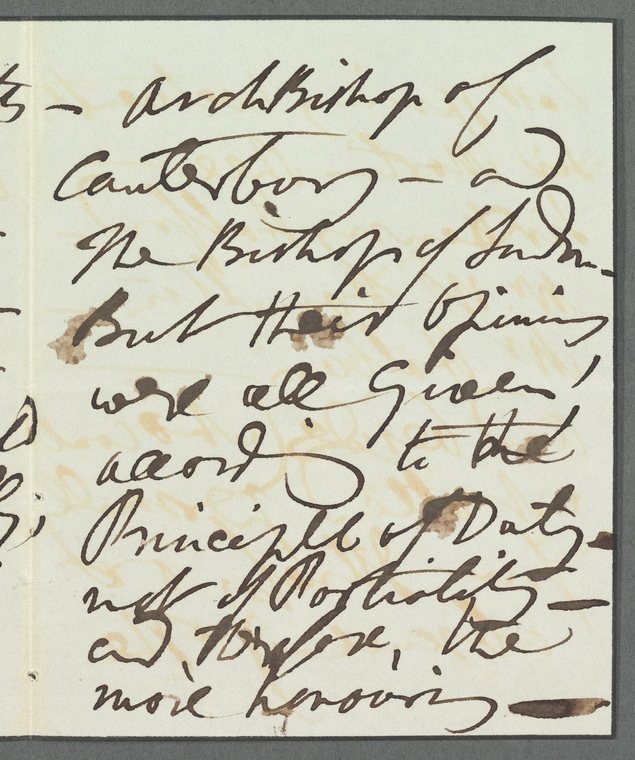 – ArchBishop of
Canterbury – and
The Bishop of London –
But their Opinions
were all Given,
according to the
Principle of Duty –
not of Partiality –
and, therefore, the
more honouring –